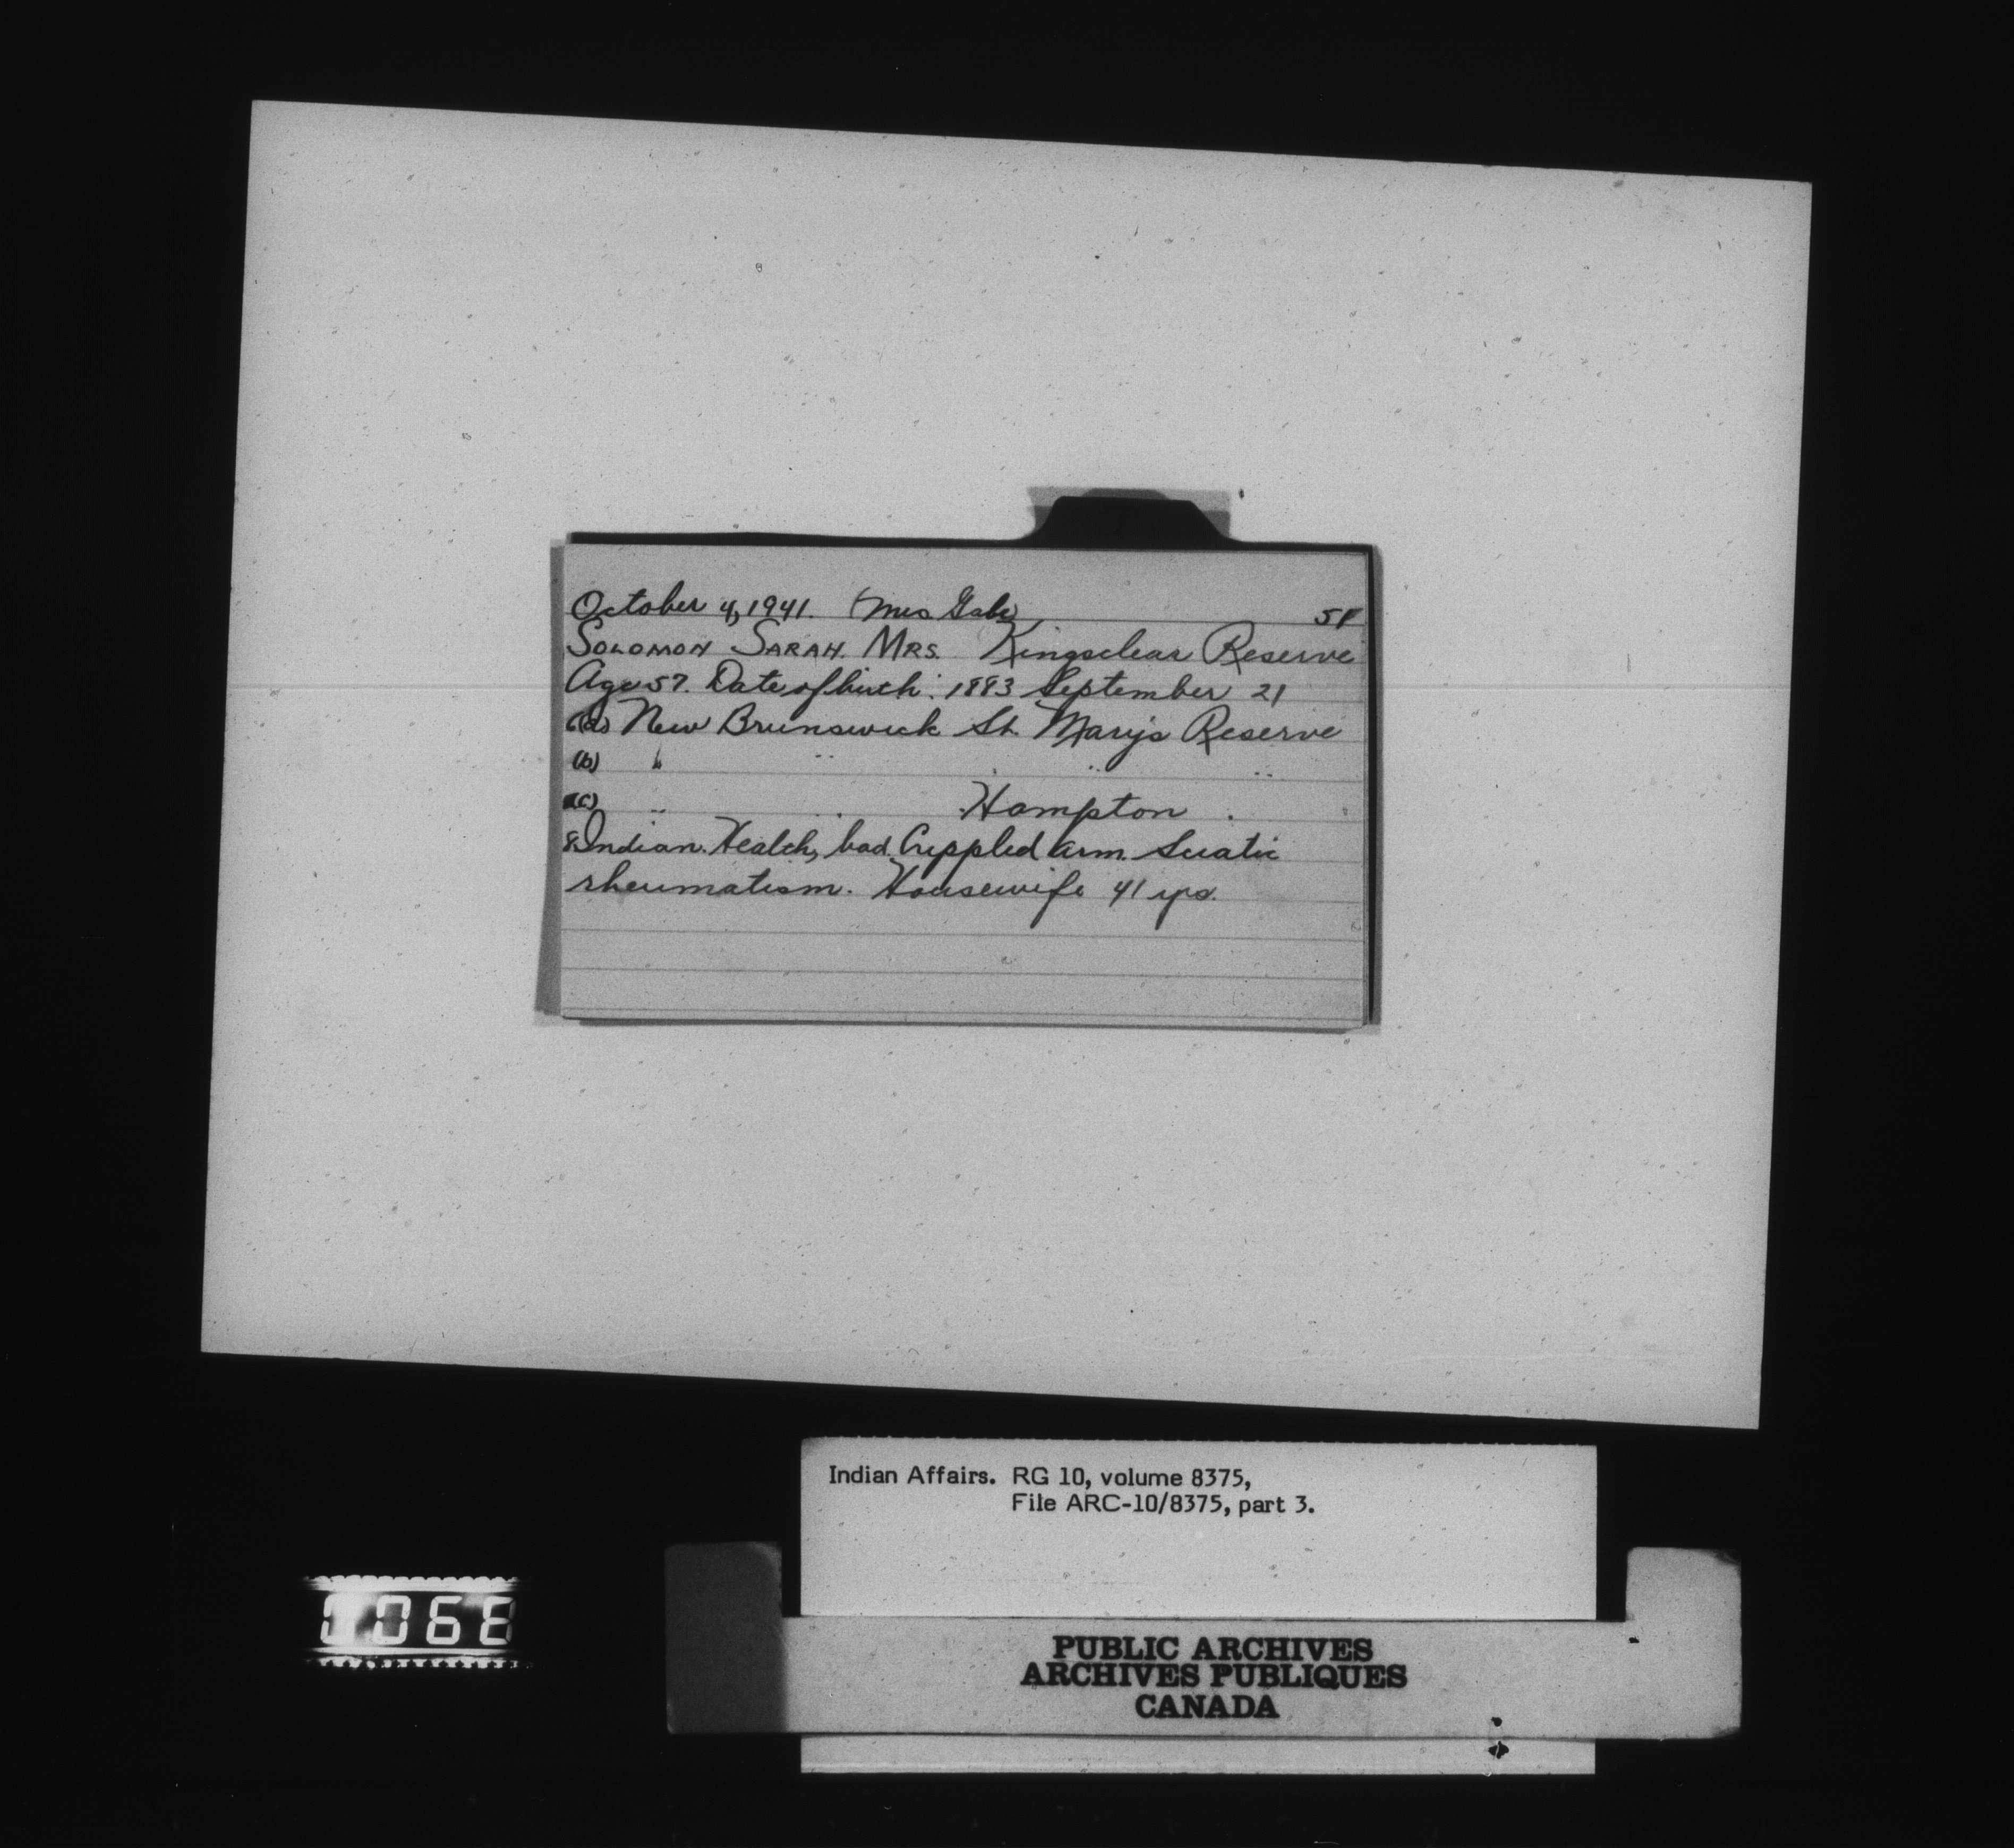 October 4, 1941. (Mrs Gabe) 58
SOLOMON SARAH. MRS. Kingsclear Reserve
Age 57. Date of birth: 1883 September 21
(a) New Brunswick St. Mary's Reserve
(b) " " " " "
(c) " " Hampton.
8. Indian. Health, bad. Crippled arm. Sciatic
rheumatism. Housewife 41 yrs.
Indian Affairs. RG 10, volume 8375,
File ARC-10/8375, part 3.
PUBLIC ARCHIVES
ARCHIVES PUBLIQUES
CANADA